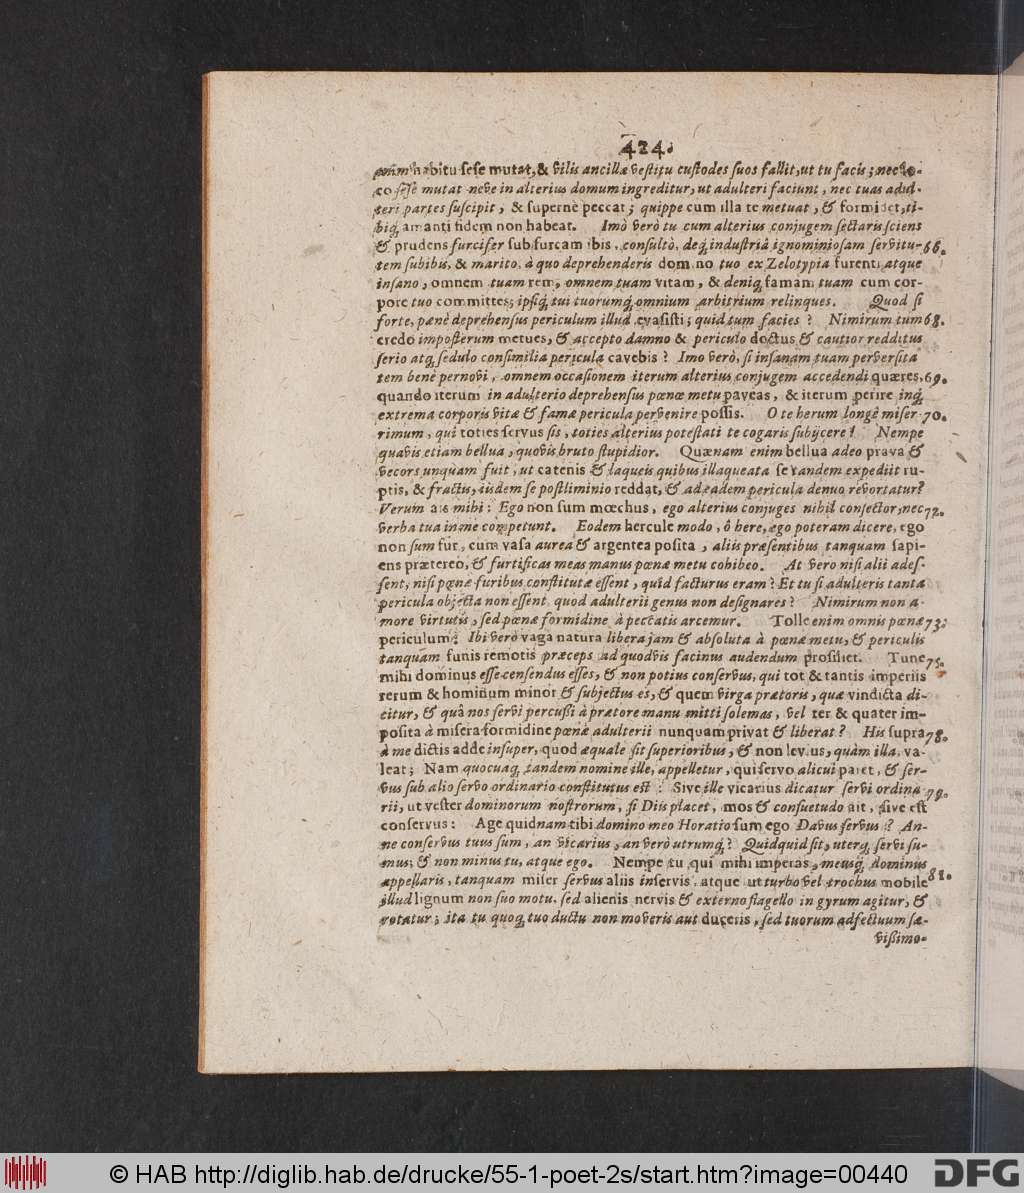 424.
habitu sese mutat, & vilis ancillæ vestitu custodes suos fallit, ut tu facis; nec lo-
co sese mutat neve in alterius domum ingreditur, ut adulteri faciunt, nec tuas adul-
teri partes suscipit, & supernè peccat; quippe cum illa te metuat, & formidet, ti-
biq́; amanti fidem non habeat. Imò verò tu cum alterius conjugem sectaris sciens
& prudens furcifer sub furcam ibis, consultò, deq́; industriâ ignominiosam servitu- 66.
tem subibis, & marito, à quo deprehenderis domino tuo ex Zelotypia furenti atque
insano, omnem tuam rem, omnem tuam vitam, & deniq́; famam tuam cum cor-
pore tuo committes; ipsiq́; tui tuorumq́; omnium arbitrium relinques. Quod si
forte, pænè deprehensus periculum illud evasisti; quid tum facies? Nimirum tum 68.
credo imposterum metues, & accepto damno & periculo doctus & cautior redditus
serio atq́; sedulo consimilia pericula cavebis? Imo verò, si insanam tuam perversita
tem benè pernovi, omnem occasionem iterum alterius conjugem accedendi quæres, 69.
quando iterum in adulterio deprehensus pœnæ metu paveas, & iterum perire inq́;
extrema corporis vitæ & famæ pericula pervenire possis. O te herum longè miser- 70.
rimum, qui toties servus sis, toties alterius potestati te cogaris subijcere! Nempe
quavis etiam bellua, quovis bruto stupidior. Quænam enim bellua adeo prava &
vecors unquam fuit, ut catenis & laqueis quibus illaqueata se tandem expediit ru-
ptis, & fractis, iisdem se postliminio reddat, & ad eadem pericula denuo revortatur?
Verum ais mihi: Ego non sum mœchus, ego alterius conjuges nihil consector, nec 72.
verba tua in me competunt. Eodem hercule modo, ô here, ego poteram dicere, ego
non sum fur, cum vasa aurea & argentea posita, aliis præsentibus tanquam sapi-
ens prætereo, & furtificas meas manus pœnæ metu cohibeo. At vero nisi alii ades-
sent, nisi pœnæ furibus constitutæ essent, quid facturus eram? Et tu si adulteris tanta
pericula objecta non essent, quod adulterii genus non designares? Nimirum non a-
more virtutis, sed pœnæ formidine à peccatis arcemur. Tolle enim omnis pœnæ 73.
periculum: Ibi verò vaga natura libera jam & absoluta à pœnæ metu, & periculis
tanquam funis remotis præceps ad quodvis facinus audendum prosiliet. Tune 75.
mihi dominus esse censendus esses, & non potius conservus, qui tot & tantis imperiis
rerum & hominum minor & subjectus es, & quem virga prætoris, quæ vindicta di-
citur, & quâ nos servi percussi à prætore manu mitti solemas, vel ter & quater im-
posita à misera formidine pœnæ adulterii nunquam privat & liberat? His supra 78.
à me dictis adde insuper, quod æquale sit superioribus, & non levius, quàm illa, va-
leat; Nam quocuaq́; tandem nomine ille, appelletur, qui servo alicui paret, & ser-
vus sub alio servo ordinario constitutus est: Sive ille vicarius dicatur servi ordina 79.
rii, ut vester dominorum nostrorum, si Diis placet, mos & consuetudo ait, sive est
conservus: Age quidnam tibi domino meo Horatio sum ego Davus servus? An-
ne conservus tuus sum, an vicarius, an verò utrumq́;? Quidquid sit, uterq́; servi su-
mus; & non minus tu, atque ego. Nempe tu qui mihi imperas, meusq́; dominus
appellaris, tanquam miser servus aliis inservis, atque ut turbo vel trochus mobile 81.
illud lignum non suo motu, sed alienis nervis & externo flagello in gyrum agitur, &
rotatur; ita tu quoq́; tuo ductu non moveris aut duceris, sed tuorum adfectuum sæ-
vissimo-
© HAB http://diglib.hab.de/drucke/55-1-poet-2s/start.htm?image=00440
DFG